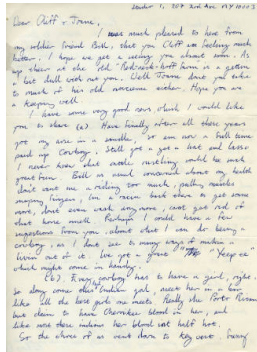 London 1, 207 3rd Ave. NY 10003
Dear Cliff & Joane,
I was much pleased to hear from
my soldier friend Bill, that you Cliff are feeling much
better. I hope we get a seeing you about soon. As
up there at the Old "Red neck-hoff" farm is a getten
a bit dull with out you. Well Joane don't you take
to much of his old overcome either. Hope you are
a keeping well.
I have some very good news which I would like
you to share (a) Have finally after all these years
got my arse in a saddle. So am now a full time
paid up Cowboy. Still got a get a hat and lasso
I never knew that cattle rustling could be such
great fun. Bill as usual concerned about my health
don't want me a riding too much, putting matches
round
more, don't even wash any more, cant get rid of
that horse smell. Perhaps I could have a few
sugestions from you about what I can do being a
cowboy, as I don't see to many ways of makin a
livin out of it. Ive got a great "Yeep ee"
which might come in handy.
(b), Every cowboy has to have a girl, right.
So along come this Indian gal, meet her in a bar
like all the best girls one meets. Really she Porter Rican
but claim to have Cherokee blood in her, and
like wow these indians her blood not half hot.
So the three of us went down to Key west. Sunny